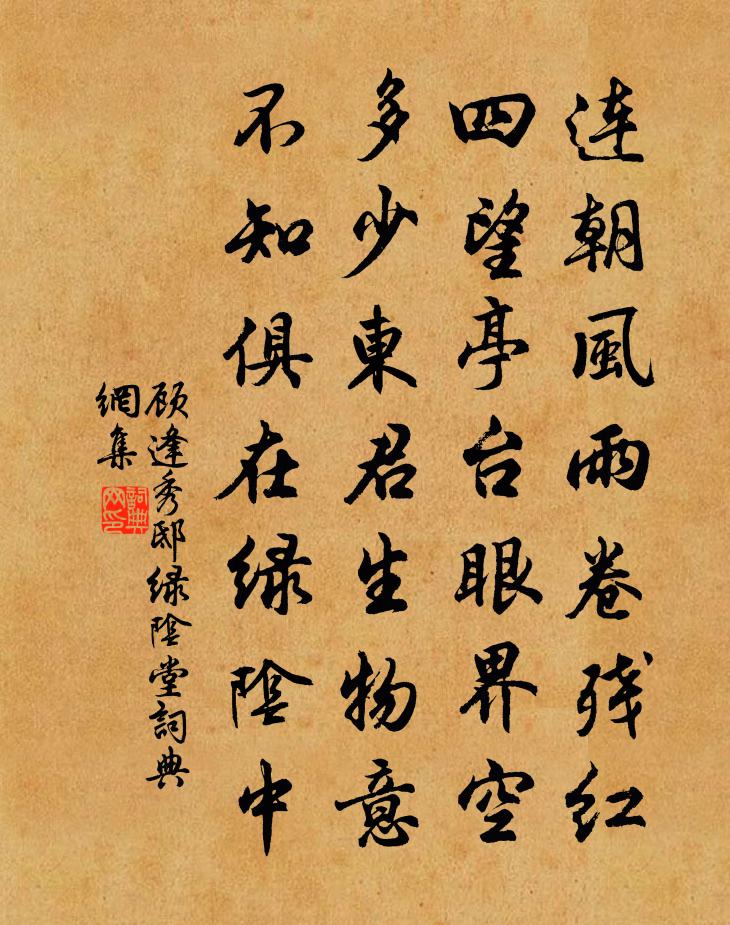 連朝風雨卷残红
四望亭台眼界空
多少東君生物意
不知俱在绿陰中
顾逢秀邸绿陰堂詞典
網集
詞典
网印